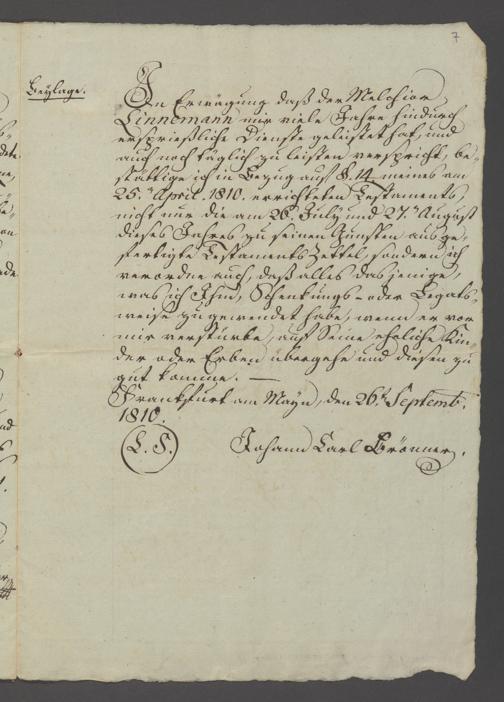 7
Beylage.
In Erwägung daß der Melchior
Linnemann mir viele Jahre hindurch
ersprießliche Dienste geleistet hat, und
auch noch täglich zu leisten verspricht, be-
stättige ich in Bezug auf §. 14 meines am
25.n April. 1810. errichteten Testaments,
nicht nur die am 26. July und 27.n August
dieses Jahres zu seinen Gunsten ausge-
fertigte Testaments Zettel, sondern ich
verordne auch, daß alles das jenige,
was ich Ihm, Schenkungs- oder Legats-
weise zugewendet habe, wenn er vor
mir verstürbe, auf Seine eheliche Kin-
der oder Erben übergehe und diesen zu
gut komme. —
Frankfurt am Mayn, den 26.n Septemb.
1810.
(L. S.) Johann Carl Brönner.